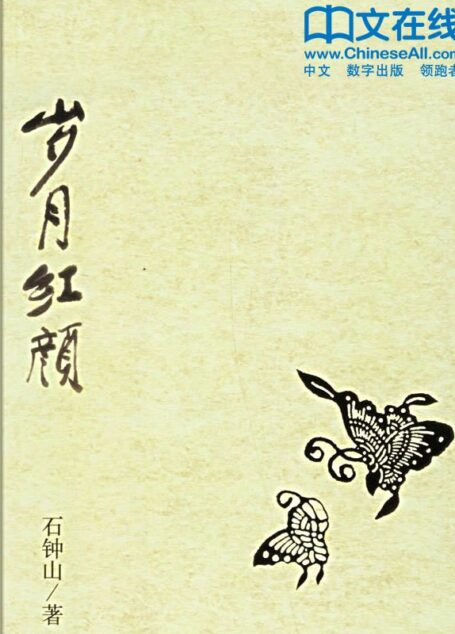 中文在线
www.ChineseAll.com
中文 数字出版 领跑者
岁月红颜
石钟山/著